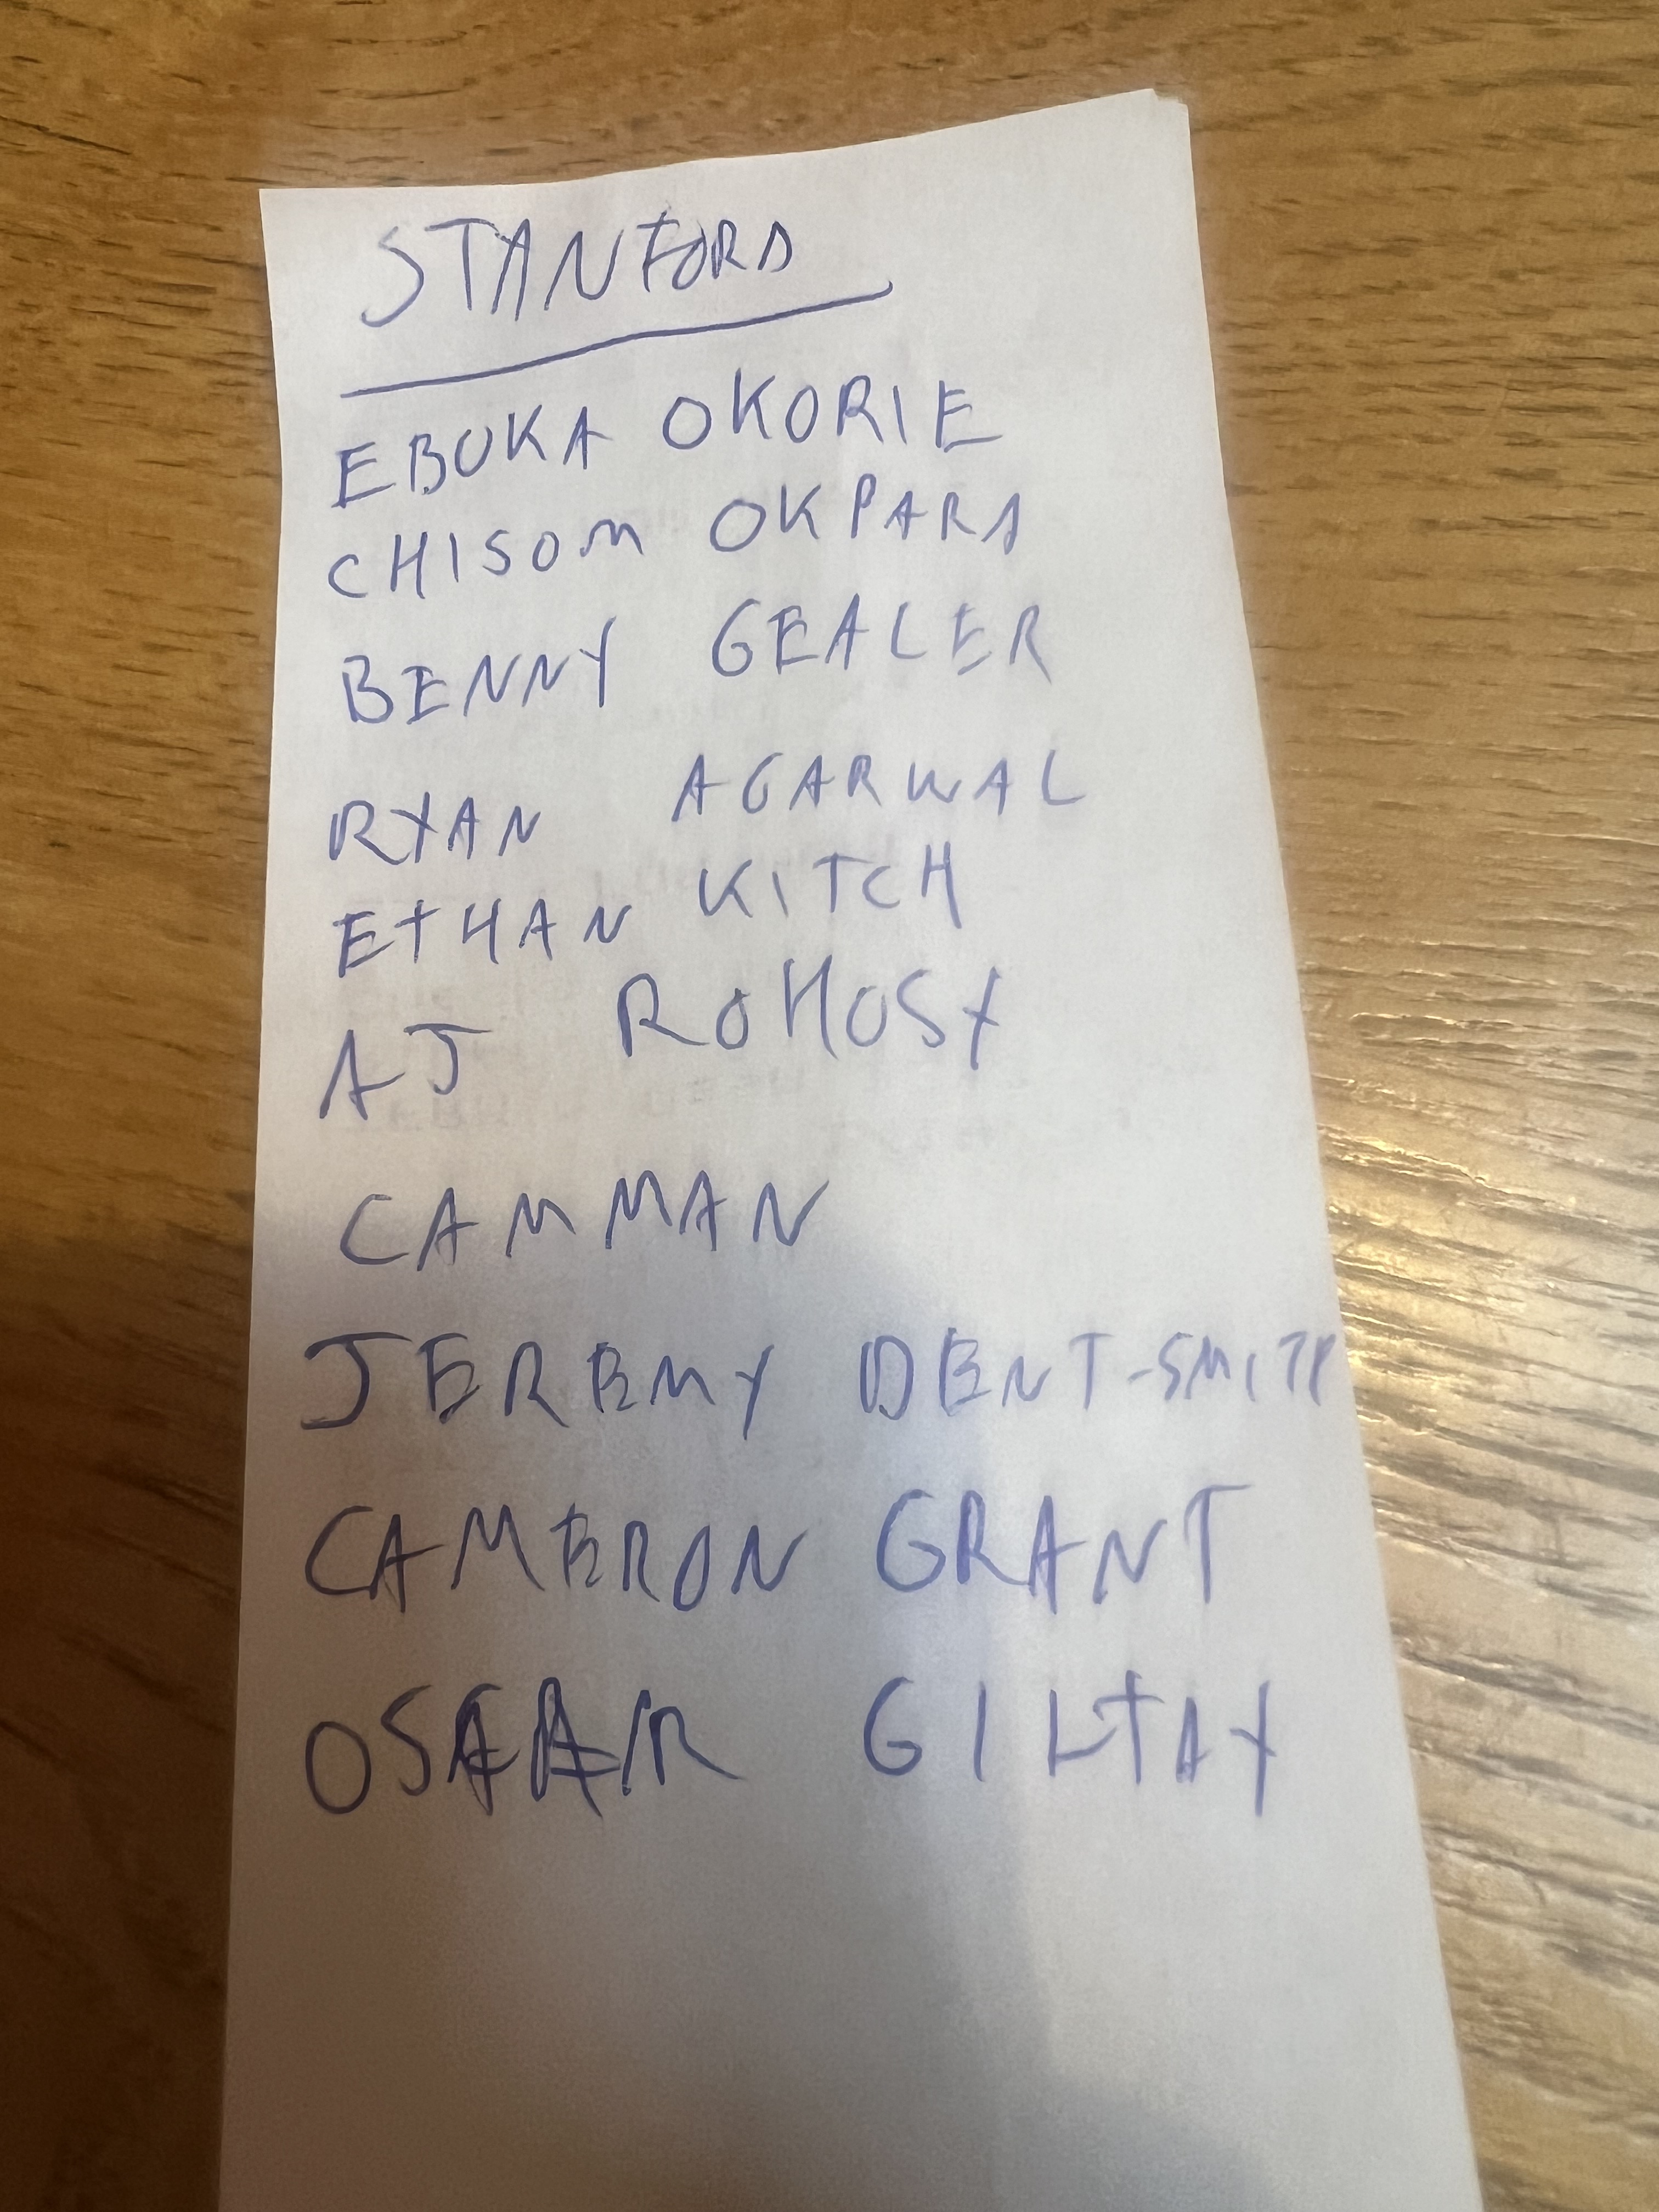 STANFORD
EBUKA OKORIE
CHISOM OKPARA
BENNY GEALER
RYAN AGARWAL
ETHAN KITCH
AJ ROHOSY
CAMMAN
JEREMY DENT-SMITH
CAMERON GRANT
OSCAR GILTAY